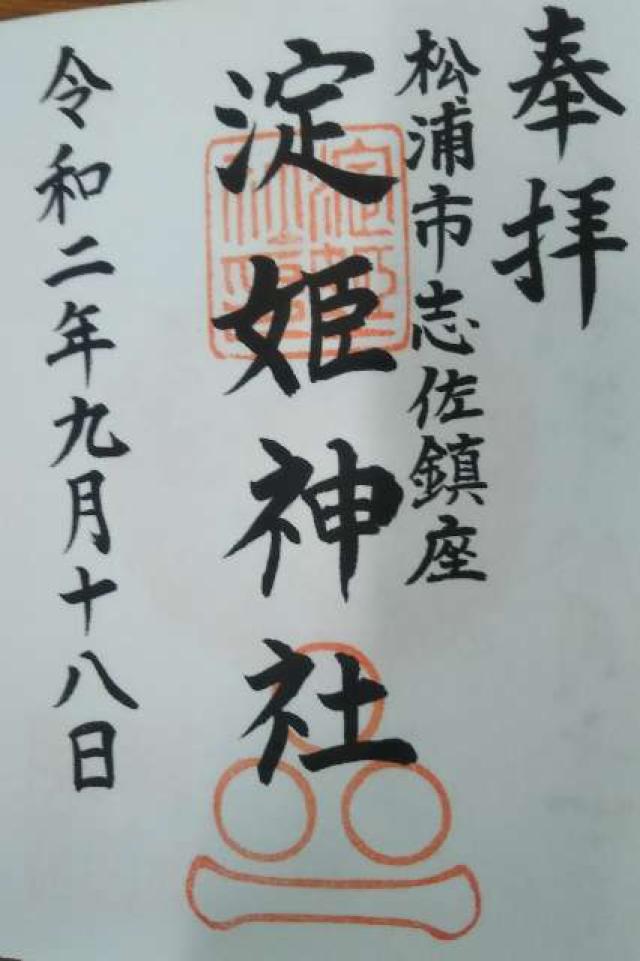 奉拝
松浦市志佐鎮座
淀姫神社
令和二年九月十八日